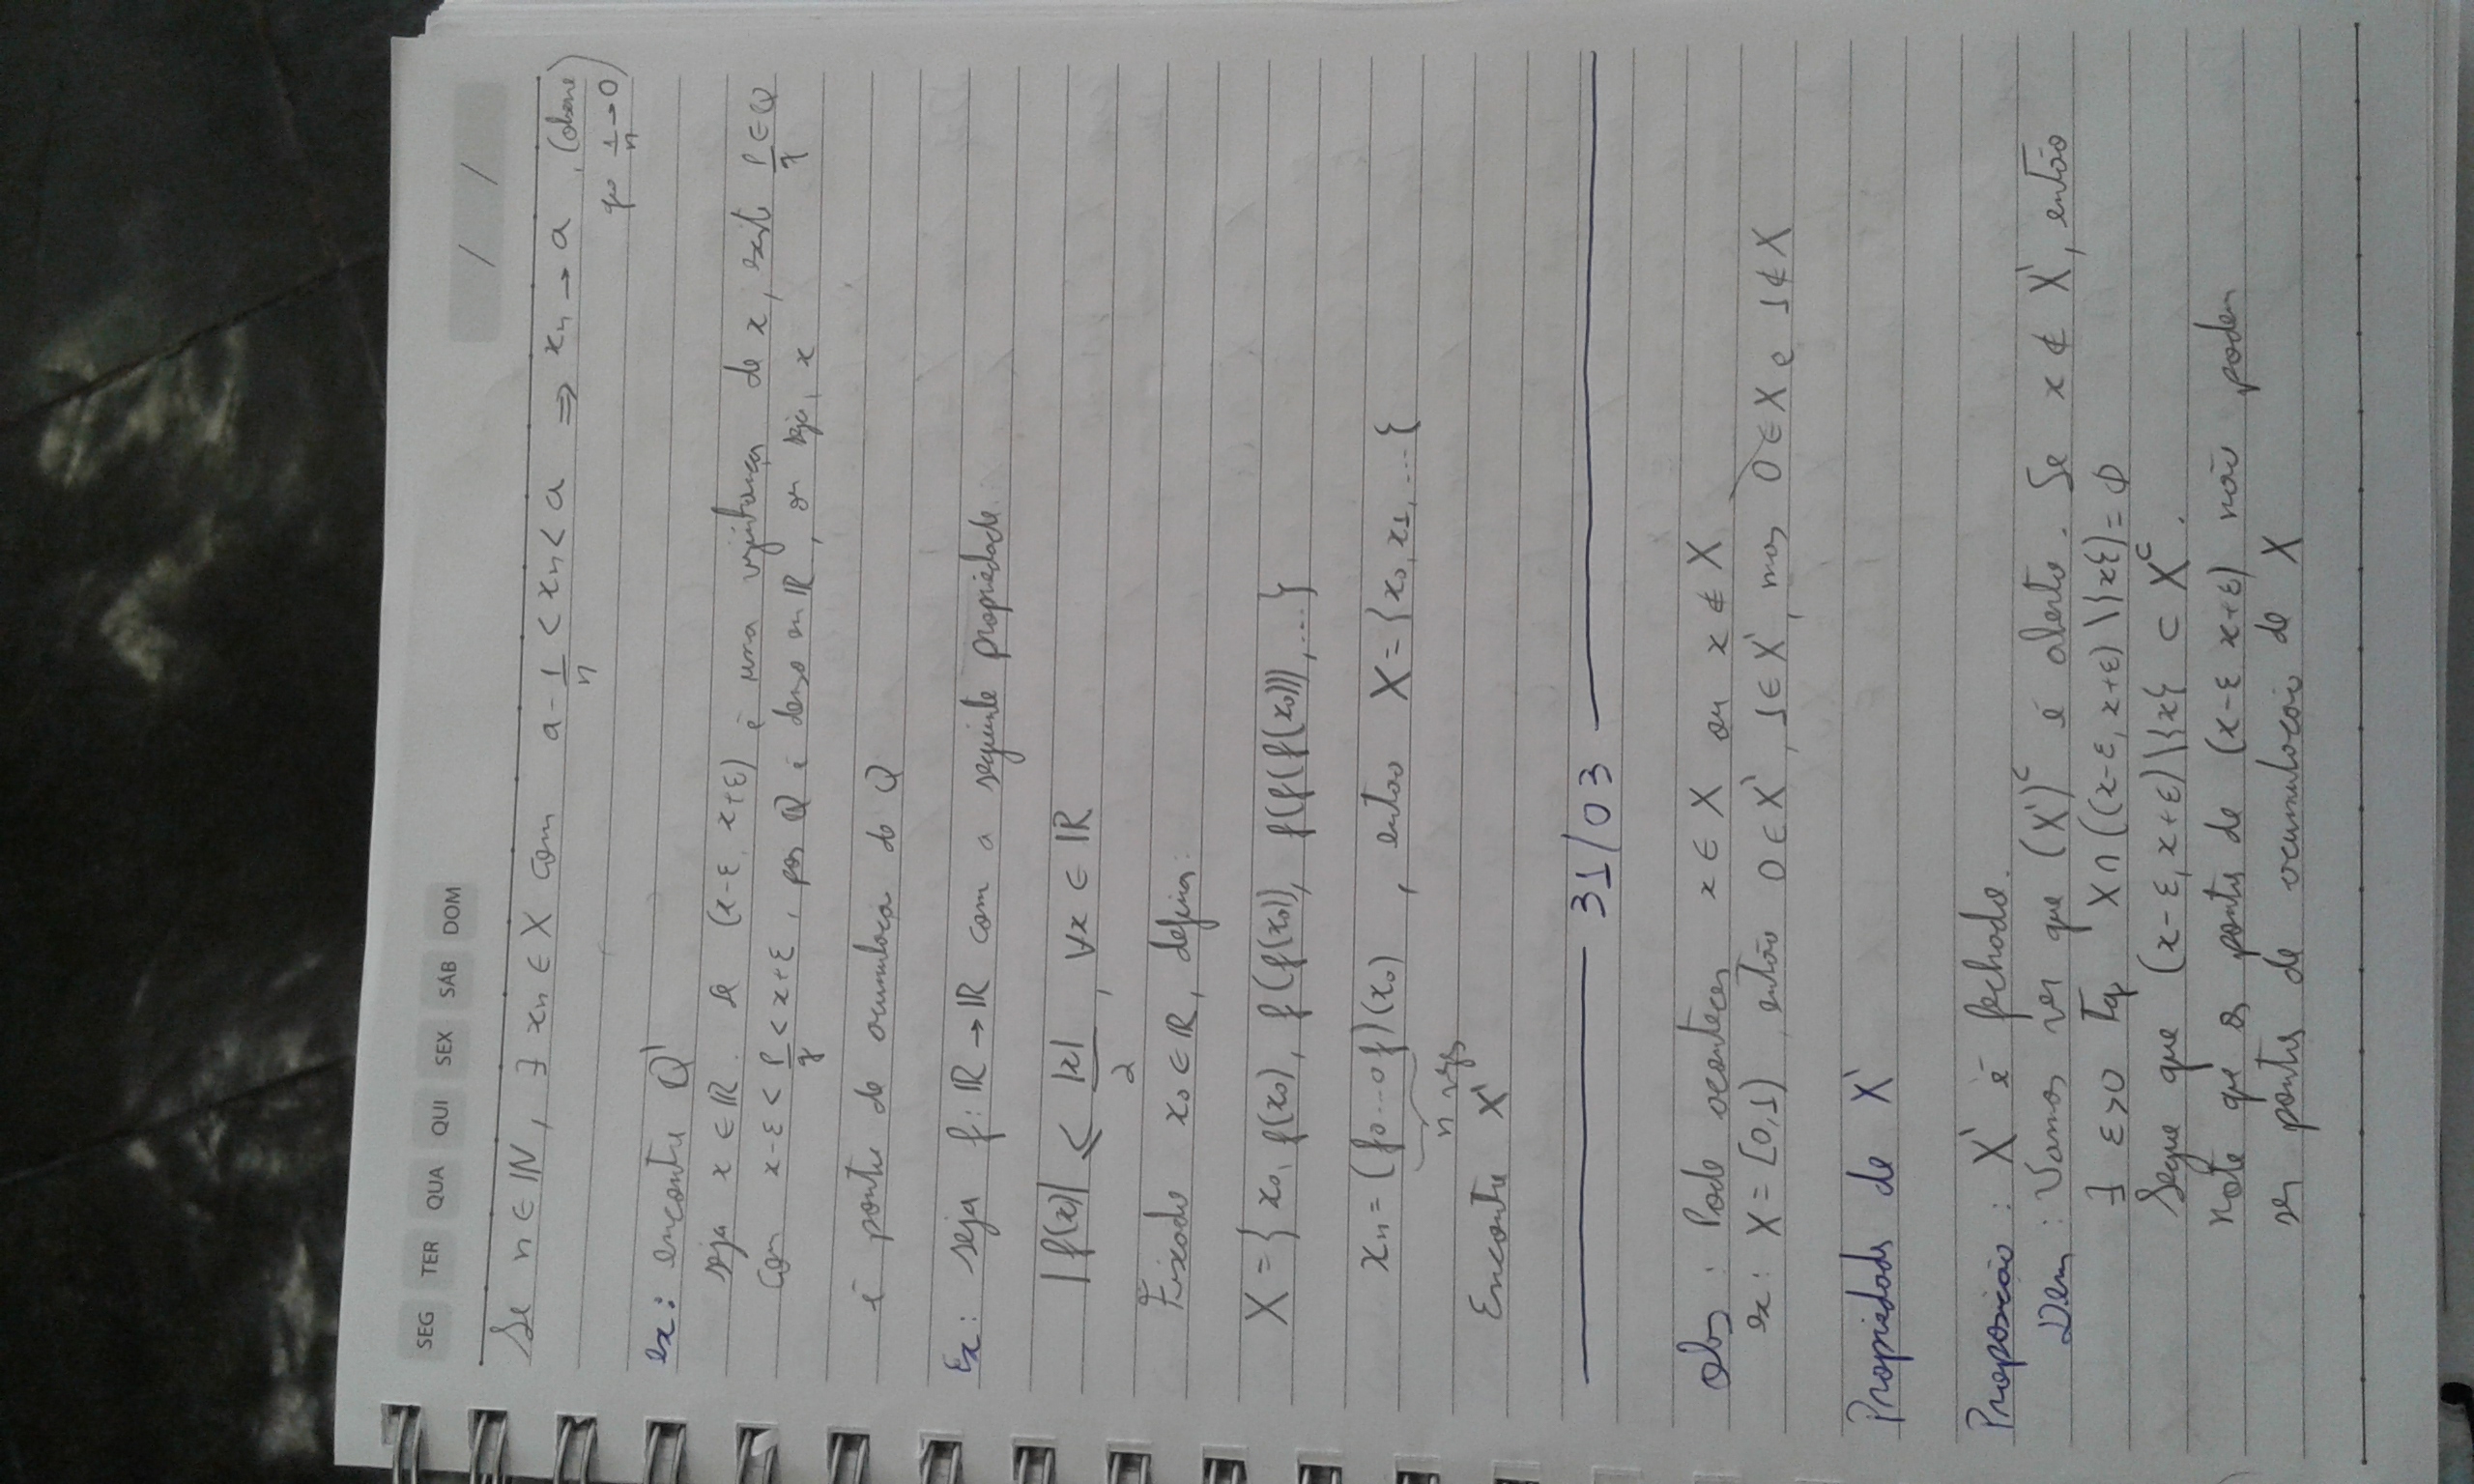 SEG TER QUA QUI SEX SÁB DOM / /
Se n ∈ ℕ, ∃ xn ∈ X com a - 1/n < xn < a ⇒ xn → a, (observe
que 1/n → 0)
ex: encontre Q'
seja x ∈ ℝ. Se (x-ε, x+ε) é uma vizinhança de x, existe p/q ∈ Q
com x-ε < p/q < x+ε, pois Q é denso em ℝ, ou seja, x
é ponto de acumulaça de Q
Ex: seja f: ℝ → ℝ com a seguinte propriedade
|f(x)| ≤ |x|/2, ∀x ∈ ℝ
Fixado x₀ ∈ ℝ, defina:
X = { x₀, f(x₀), f(f(x₀)), f(f(f(x₀))), ... }
xn = (f∘...∘f)(x₀), entao X = {x₀, x1, ...}
n vezes
Encontre X'
31/03
Obs: Pode acontecer x ∈ X ou x ∉ X
ex: X = [0,1), então 0 ∈ X', 1 ∈ X', mas 0 ∈ X e 1 ∉ X
Propriedades de X'
Proposição: X' é fechado.
Dem: Vamos ver que (X')ᶜ é aberto. Se x ∉ X', então
∃ ε>0 tq X ∩ ((x-ε, x+ε) \ {x}) = ∅
Segue que (x-ε, x+ε) \ {x} ⊂ Xᶜ.
Note que os pontos de (x-ε x+ε) não podem
ser pontos de acumulação de X